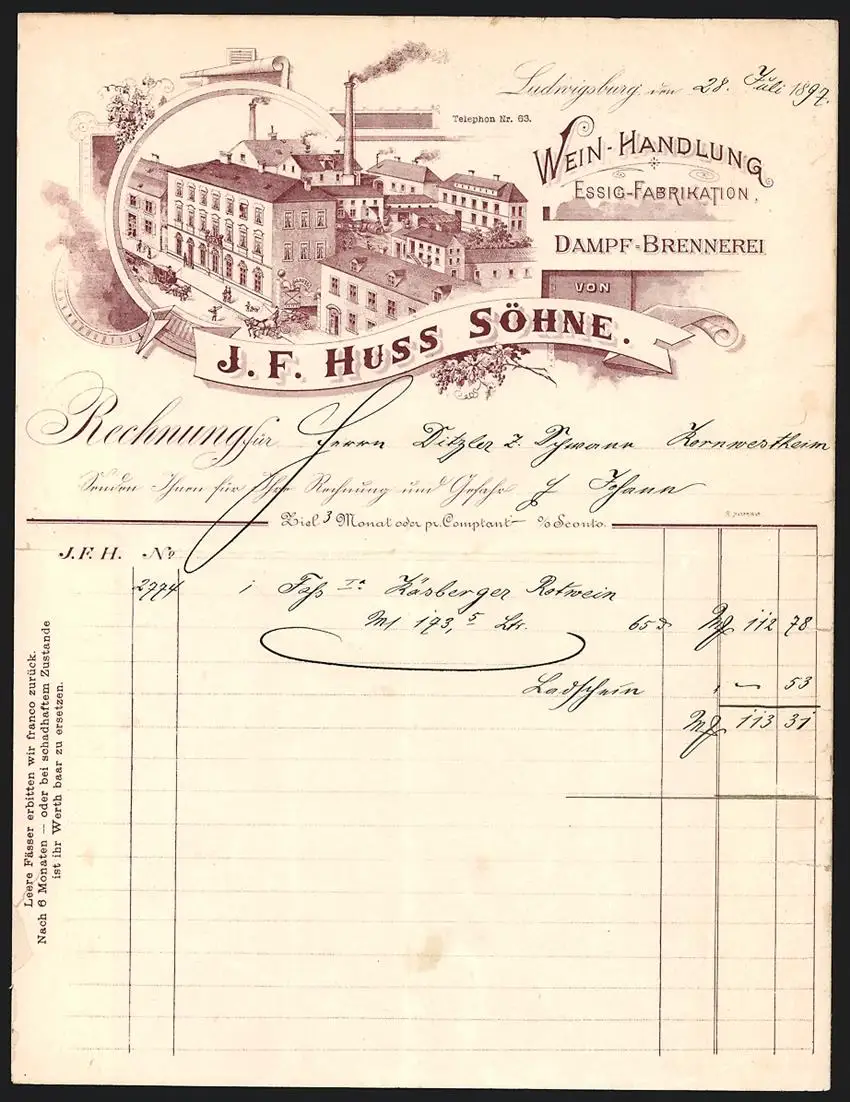 Ludwigsburg, den 28. Juli 1897.
Telephon Nr. 63.
WEIN-HANDLUNG
ESSIG-FABRIKATION,
DAMPF-BRENNEREI
VON
J. F. HUSS SÖHNE.
Rechnung für Herrn Ditzler z. Schwann Kornwestheim
Senden Ihnen für Ihre Rechnung und Gefahr p Johann
Ziel 3 Monat oder pr. Comptant % Sconto.
J. F. H. No
2774 1 Fass Ia Käsberger Rotwein
M/ 173,5 Ltr. 65 M 112 78
Ladschein " — 53
M 113 31
Leere Fässer erbitten wir franco zurück.
Nach 6 Monaten — oder bei schadhaftem Zustande
ist ihr Werth baar zu ersetzen.